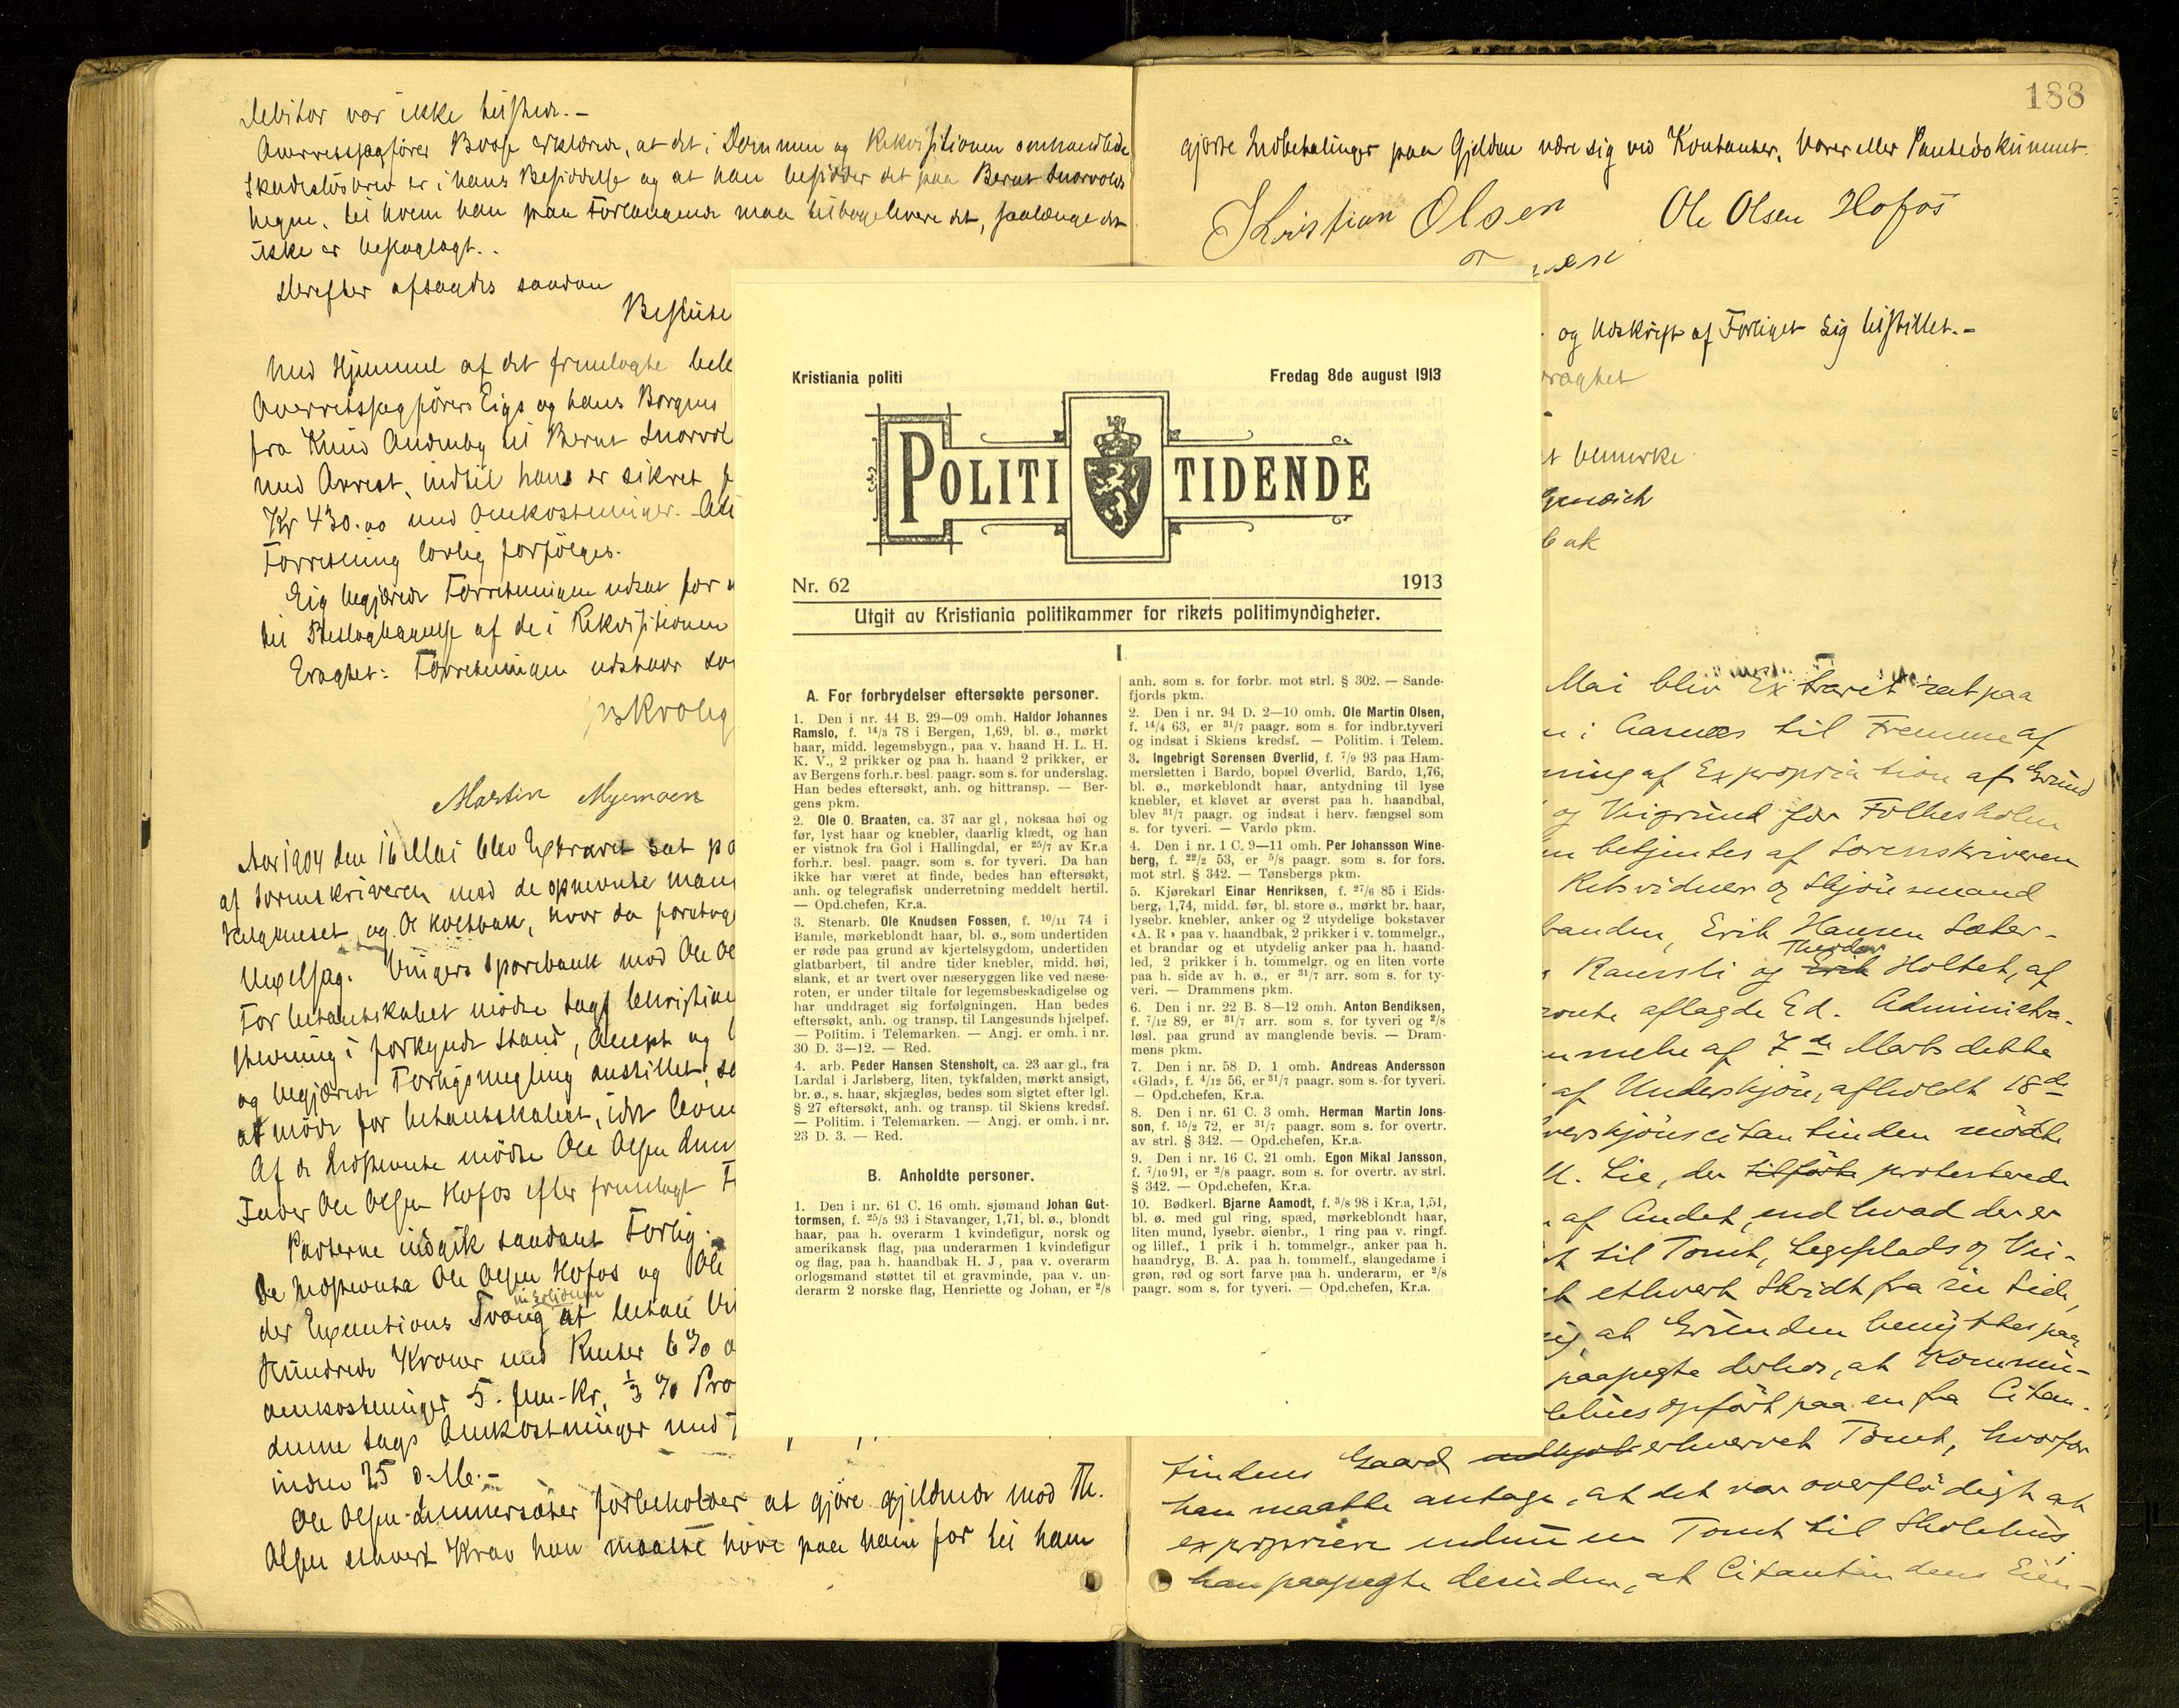 Debitor var ikke tilstede.-
Overretssagfører Boose erklærede, at det i Dommen og Rekvisitionen omhandlede
Skadesløsbrev er i hans Besiddelse og at han besidder det paa Bernt Snorvolds
Vegne, til hvem han paa Forlangende maa tilbagelevere det, saalænge det
ikke er beslaglagt..
Derefter afsagdes saadan
Beslutn
Med Hjemmel af det fremlagte
Overretssagfører Eigs og hans Borgens
fra Knud Audenby til Bernt Snorvol
med Arrest, indtil hans er sikret
Kr 430.00 med Omkostninger.
Forretning lovlig forfölges.
Eig begjærede Forretningen udsat for
til Beslaglæggelse af de i Rekvisitionen
Eragtet: Forretningen udstaar
Martin Myrmoen
Aar 1904 den 16 Mai blev Extraret sat
af Sorenskriveren med de opnevnte
og O Koltbak, hvor da foretoges
Vexelsag. Vingers Sparebank mod Ole
For Citantskabet mødte Sagf Christian
Stevning i forkyndt Stand, Accept og
og begjærede Forligsmegling anstillet,
at møde for Citantskabet, idet
Af de Indstevnte mødte Ole Olsen
Ole Olsen Hofos efter fremlagt
Parterne indgik saadant Forlig:
De Indstevnte Ole Olsen Hofos og Ole
in solidum
der Executions Tvang at betale
Hundrede Kroner med Renter 6% o
omkostninger 5. fem-Kr, ⅓ % Pro
denne Sags Omkostninger med
inden 25 d. M.-
Ole Olsen forbeholder at gjöre gjeldende mod Th.
Olsen ethvert Krav han maatte have paa ham for til ham
188
gjorte Indbetalinger paa Gjelden være sig ved Kontanter, Varer eller Pantedokument.
Kristian Olsen Ole Olsen Hofos
og Udskrift af Forliget sig tilstillet.-
bemerke
Mai blev Extraret sat paa
i Aarnes til Fremme af
ning af Expropriation af Grund
og Veigrund for Folkeskolen
betjentes af Sorenskriveren
Retsvidner og Skjönsmænd
Erik Hansen Sæter-
Theodor
og Erik Holtet, af
aflagde Ed. Administra-
af 7de Marts dette
af Underskjön, afholdt 18de
erskjönscitantinden mödte
Lie, der tilförte protesterede
af Andet, end hvad der er
til Tomt, Legeplads og Vei-
ethvert Skridt fra sin Side,
at Grunden benyttes paa
paapegte derhos, at Kommu-
opfört paa en fra Citan-
tindens Gaard udskjöt erhvervet Tomt, hvorfor
han maatte antage, at det var overflödigt at
expropriere endnu en Tomt til Skolehus,
han paapegte desuden, at Citantindens Eien-
Kristiania politi Fredag 8de august 1913
POLITI TIDENDE
Nr. 62 1913
Utgit av Kristiania politikammer for rikets politimyndigheter.
I.
A. For forbrydelser eftersøkte personer.
1. Den i nr. 44 B. 29—09 omh. Haldor Johannes
Ramslo, f. 14/3 78 i Bergen, 1,69, bl. ø., mørkt
haar, midd. legemsbygn., paa v. haand H. L. H.
K. V., 2 prikker og paa h. haand 2 prikker, er
av Bergens forh.r. besl. paagr. som s. for underslag.
Han bedes eftersøkt, anh. og hittransp. — Ber-
gens pkm.
2. Ole O. Braaten, ca. 37 aar gl, noksaa høi og
før, lyst haar og knebler, daarlig klædt, og han
er vistnok fra Gol i Hallingdal, er 25/7 av Kr.a
forh.r. besl. paagr. som s. for tyveri. Da han
ikke har været at finde, bedes han eftersøkt,
anh. og telegrafisk underretning meddelt hertil.
— Opd.chefen, Kr.a.
3. Stenarb. Ole Knudsen Fossen, f. 10/11 74 i
Bamle, mørkeblondt haar, bl. ø., som undertiden
er røde paa grund av kjertelsygdom, undertiden
glatbarbert, til andre tider knebler, midd. høi,
slank, et ar tvert over næseryggen like ved næse-
roten, er under tiltale for legemsbeskadigelse og
har unddraget sig forfølgningen. Han bedes
eftersøkt, anh. og transp. til Langesunds hjælpef.
— Politim. i Telemarken. — Angj. er omh. i nr.
30 D. 3—12. — Red.
4. arb. Peder Hansen Stensholt, ca. 23 aar gl., fra
Lardal i Jarlsberg, liten, tykfalden, mørkt ansigt,
br. ø., s. haar, skjægløs, bedes som sigtet efter lgl.
§ 27 eftersøkt, anh. og transp. til Skiens kredsf.
— Politim. i Telemarken. — Angj. er omh. i nr.
23 D. 3. — Red.
B. Anholdte personer.
1. Den i nr. 61 C. 16 omh. sjømand Johan Gut-
tormsen, f. 25/5 93 i Stavanger, 1,71, bl. ø., blondt
haar, paa h. overarm 1 kvindefigur, norsk og
amerikansk flag, paa underarmen 1 kvindefigur
og flag, paa h. haandbak H. J, paa v. overarm
orlogsmand støttet til et gravminde, paa v. un-
derarm 2 norske flag, Henriette og Johan, er 2/8
anh. som s. for forbr. mot strl. § 302. — Sande-
fjords pkm.
2. Den i nr. 94 D. 2—10 omh. Ole Martin Olsen,
f. 14/4 63, er 31/7 paagr. som s. for indbr.tyveri
og indsat i Skiens kredsf. — Politim. i Telem.
3. Ingebrigt Sørensen Øverlid, f. 7/9 93 paa Ham-
mersletten i Bardo, bopæl Øverlid, Bardo, 1,76,
bl. ø., mørkeblondt haar, antydning til lyse
knebler, et kløvet ar øverst paa h. haandbal,
blev 31/7 paagr. og indsat i herv. fængsel som
s. for tyveri. — Vardø pkm.
4. Den i nr. 1 C. 9—11 omh. Per Johansson Wine-
berg, f. 22/2 53, er 5/8 paagr. som s. for fors.
mot strl. § 342. — Tønsbergs pkm.
5. Kjørekarl Einar Henriksen, f. 27/6 85 i Eids-
berg, 1,74, midd. før, bl. store ø., mørkt br. haar,
lysebr. knebler, anker og 2 utydelige bokstaver
«A. R» paa v. haandbak, 2 prikker i v. tommelgr.,
et brandar og et utydelig anker paa h. haand-
led, 2 prikker i h. tommelgr. og en liten vorte
paa h. side av h. ø., er 31/7 arr. som s. for ty-
veri. — Drammens pkm.
6. Den i nr. 22 B. 8—12 omh. Anton Bendiksen,
f. 7/12 89, er 31/7 arr. som s. for tyveri og 2/8
løsl. paa grund av manglende bevis. — Dram-
mens pkm.
7. Den i nr. 58 D. 1 omh. Andreas Andersson
«Glad», f. 4/12 56, er 31/7 paagr. som s. for tyveri.
— Opd.chefen, Kr.a.
8. Den i nr. 61 C. 3 omh. Herman Martin Jons-
son, f. 15/2 72, er 31/7 paagr. som s. for overtr.
av strl. § 342. — Opd.chefen, Kr.a.
9. Den i nr. 16 C. 21 omh. Egon Mikal Jansson,
f. 7/10 91, er 2/8 paagr. som s. for overtr. av strl.
§ 342. — Opd.chefen, Kr.a.
10. Bødkerl. Bjarne Aamodt, f. 3/8 98 i Kr.a, 1,51,
bl. ø. med gul ring, spæd, mørkeblondt haar,
liten mund, lysebr. øienbr., 1 ring paa v. ringf.
og lillef., 1 prik i h. tommelgr., anker paa h.
haandryg, B. A. paa h. tommelf., slangedame i
grøn, rød og sort farve paa h. underarm, er 2/8
paagr. som s. for tyveri. — Opd.chefen, Kr.a.